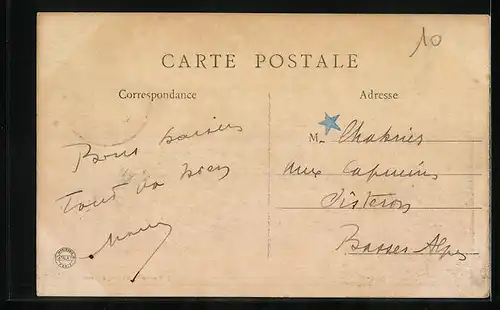 10
CARTE POSTALE
Correspondance
Adresse
Bons baisers
Tout va bien
M. Chabrier
aux Capucins
Sisteron
Basses Alpes